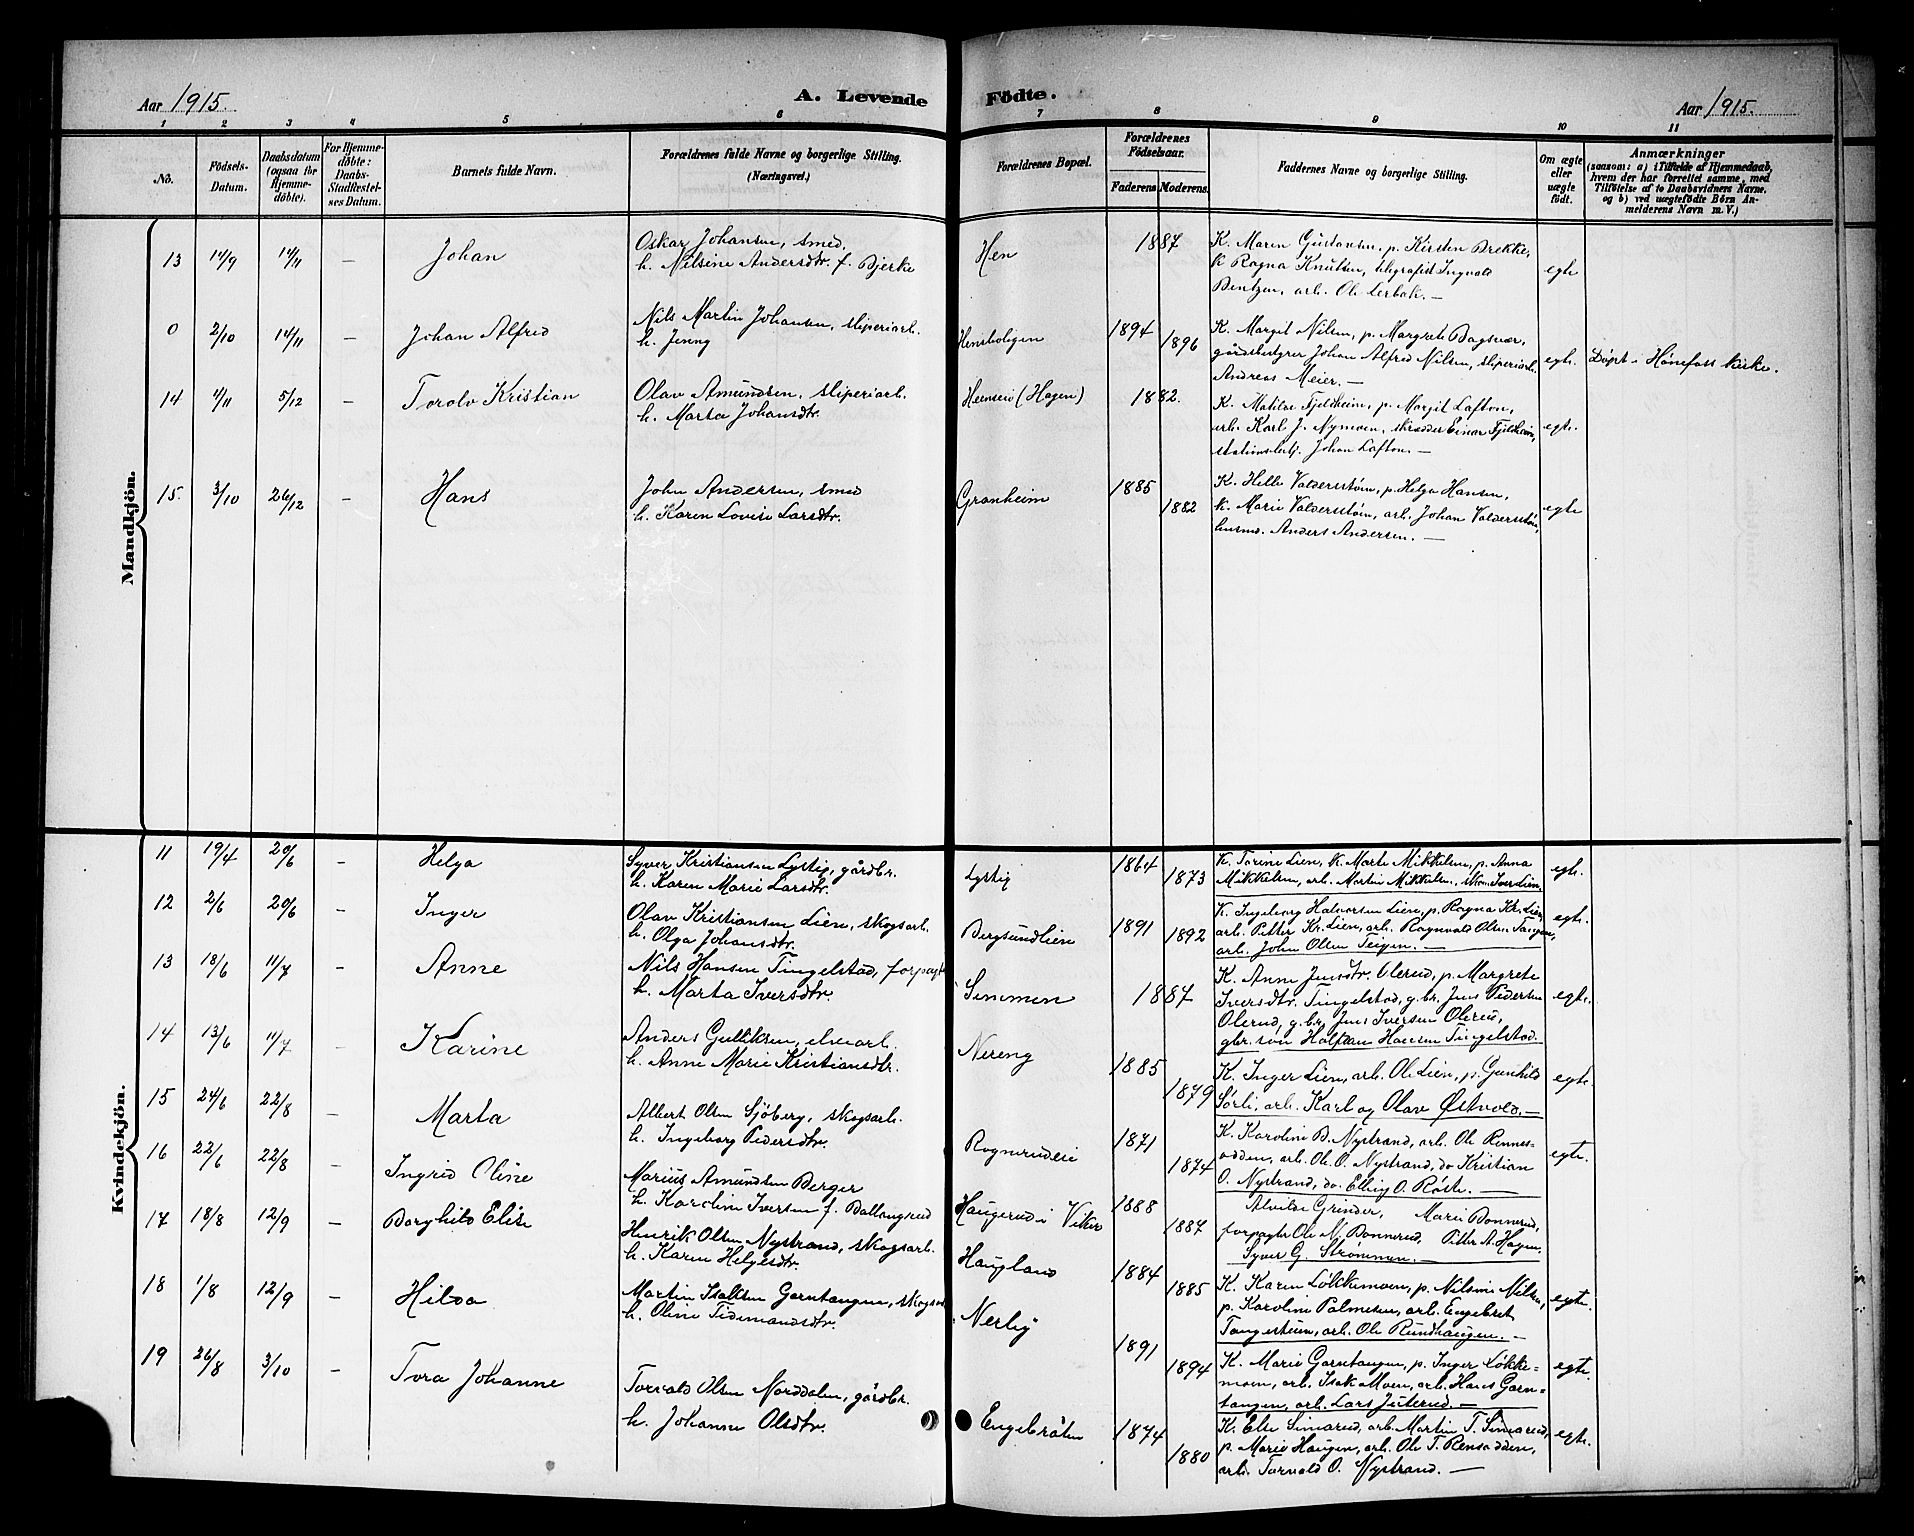 Aar 1915.
A. Levende Födte.
Aar 1915.
1 2 3 4 5 6 7 8 9 10 11
No.
Födsels-Datum.
Daabsdatum (ogsaa for Hjemme-döbte).
For Hjemme-döbte: Daabs-Stadfæstel-ses Datum.
Barnets fulde Navn.
Forældrenes fulde Navne og borgerlige Stilling. (Næringsvei.)
Forældrenes Bopæl.
Forældrenes Födselsaar.
Faderens Moderens.
Faddernes Navne og borgerlige Stilling.
Om ægte eller uægte födt.
Anmærkninger
(saasom: a) i Tilfælde af Hjemmedaab,
hvem der har forrettet samme, med
Tilföielse af to Daabsvidners Navne.
og b) ved uægtefödte Börn An-
melderens Navn m. V.)
Mandkjön.
13 14/9 14/11 — Johan
Oskar Johansen, smed.
h. Nilsine Andersdtr. f. Bjerke
Hen 1887
K. Maren Gustansen, p. Kirsten Brekke,
k Ragna Knutsen, telegrafist Ingvald
Bentzen, arb. Ole Lerbak. —
egte
0 2/10 14/11 — Johan Alfred
Nils Martin Johansen, sliperiarb.
h. Jenny
Hensboligen 1894 1896
K. Margit Nilsen, p. Margrete Bagsvær,
gårdsbestyrer Johan Alfred Nilsen, sliperiarb.
Andreas Meier. —
egte.
Døpt i Hønefoss kirke.
14 4/11 5/12 — Torolv Kristian
Olav Amundsen, sliperiarb.
h. Marta Johansdtr.
Hermseie (Hagen) 1882.
K. Matilde Fjeldheim, p. Margit Lafton,
arb. Karl J. Nymoen, skrædder Einar Fjeldheim,
stationsbetj. Johan Lafton. —
egte.
15. 3/10 26/12 — Hans
John Andersen, smed
h. Karen Lovise Larsdtr.
Granheim 1885 1882
K. Helle Valdersstøin, p. Helga Hansen,
k. Marie Valdersstøin, arb. Johan Valdersstøin,
husmd. Anders Andersen. —
egte
Kvindekjön.
11 19/4 20/6 — Helga
Syver Kristiansen Lystig, gårdbr.
h. Karen Marie Larsdtr.
Lystig 1864 1873
K. Torine Lien, k. Marte Mikkelsen, p. Anna
Mikkelsen, arb. Martin Mikkelsen, skom. Iver Lien
egte.
12 2/6 20/6 — Inger
Olav Kristiansen Lien, skogsarb.
h. Olga Johansdtr.
Bergsundlien 1891 1892
K. Ingeborg Halvorsen Lien, p. Ragna Kr. Lien,
arb. Petter Kr. Lien, arb. Ragnvald Olsen Tangen,
arb. John Olsen Teigen. —
egte.
13 18/6 11/7 — Anne
Nils Hansen Tingelstad, forpagt
h. Marta Iversdtr.
Semmen 1887
K. Anne Jensdtr. Olerud, p. Margrete
Iversdtr. Tingelstad, g.br. Jens Pedersen
Olerud, g.br. Jens Iversen Olerud,
gbr. søn Halfdan Hansen Tingelstad.
egte.
14 13/6 11/7 — Karine
Anders Gulliksen, elvearb.
h. Anne Marie Kristiansdtr.
Nereng 1885 1879
K. Inger Lien, arb. Ole Lien, p. Gunhild
Sørli, arb. Karl og Olav Østvold. —
egte.
15 24/6 22/8 — Marta
Albert Olsen Sjøberg, skogsarb.
h. Ingeborg Pedersdtr.
Rognerudeie 1871 1874
K. Karoline B. Nystrand, arb. Ole Rennes-
odden, arb. Ole O. Nystrand, do Kristian
O. Nystrand, do. Elling O. Røste. —
egte.
16 22/6 22/8 — Ingrid Oline
Marius Amundsen Berger
h. Karoline Iversen f. Ballangrud
Haugerud i Viker 1888 1887
Alvilde Grinder, Marie Bonnerud,
forpagter Ole N. Bonnerud, Petter A. Hagen,
Syver G. Strømmen. —
17 18/8 12/9 — Borghild Elise
Henrik Olsen Nystrand, skogsarb.
h. Karen Helgesdtr.
Haugland 1884 1885
K. Karen Løkkemoen, p. Nilsine Nilsen,
p. Karoline Palmesen, arb. Engebret
Tangestuen, arb. Ole Rundhaugen. —
egte.
18 1/8 12/9 — Hilda
Martin Isaksen Garntangen, skogsar
h. Oline Tidemandsdtr.
Nerby 1891 1894
K. Marie Garntangen, p. Inger Løkke-
moen, arb. Isak Moen, arb. Hans Garn-
tangen, arb. Lars Juterud. —
egte.
19 26/8 3/10 — Tora Johanne
Torvald Olsen Norddalen, gårdbr.
h. Johanne Olsdtr.
Engebråten 1874 1880
K. Else Simarud, arb. Martin T. Simarud,
p. Marie Haugen, arb. Ole T. Rensodden,
arb. Torvald O. Nystrand. —
egte.